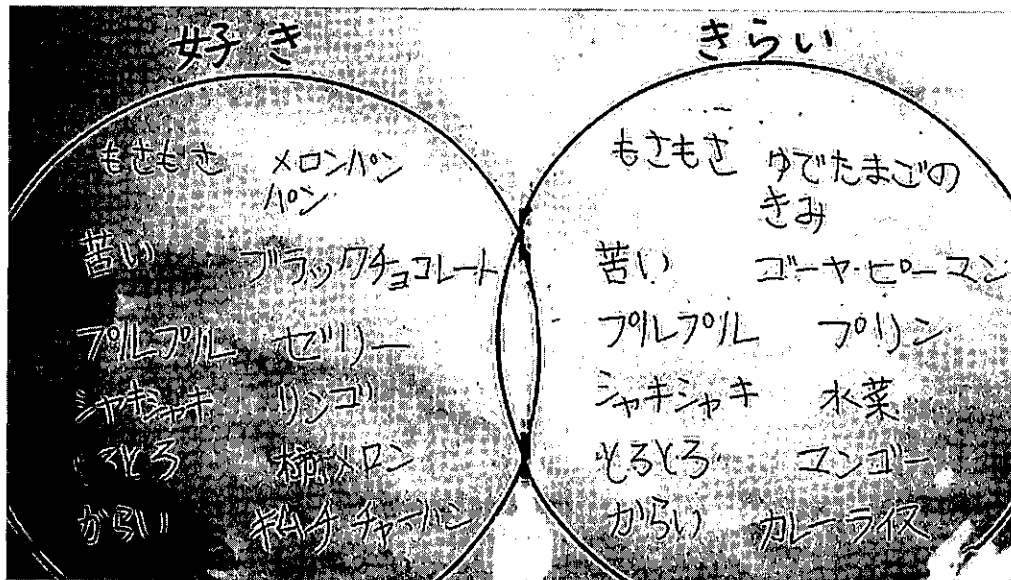 好き
もさもさ メロンパン
パン
苦い ブラックチョコレート
プルプル ゼリー
シャキシャキ リンゴ
とろとろ 柿、メロン
からい キムチチャーハン
きらい
もさもさ ゆでたまごの
きみ
苦い ゴーヤ・ピーマン
プルプル プリン
シャキシャキ 水菜
とろとろ マンゴー
からい カレーライス